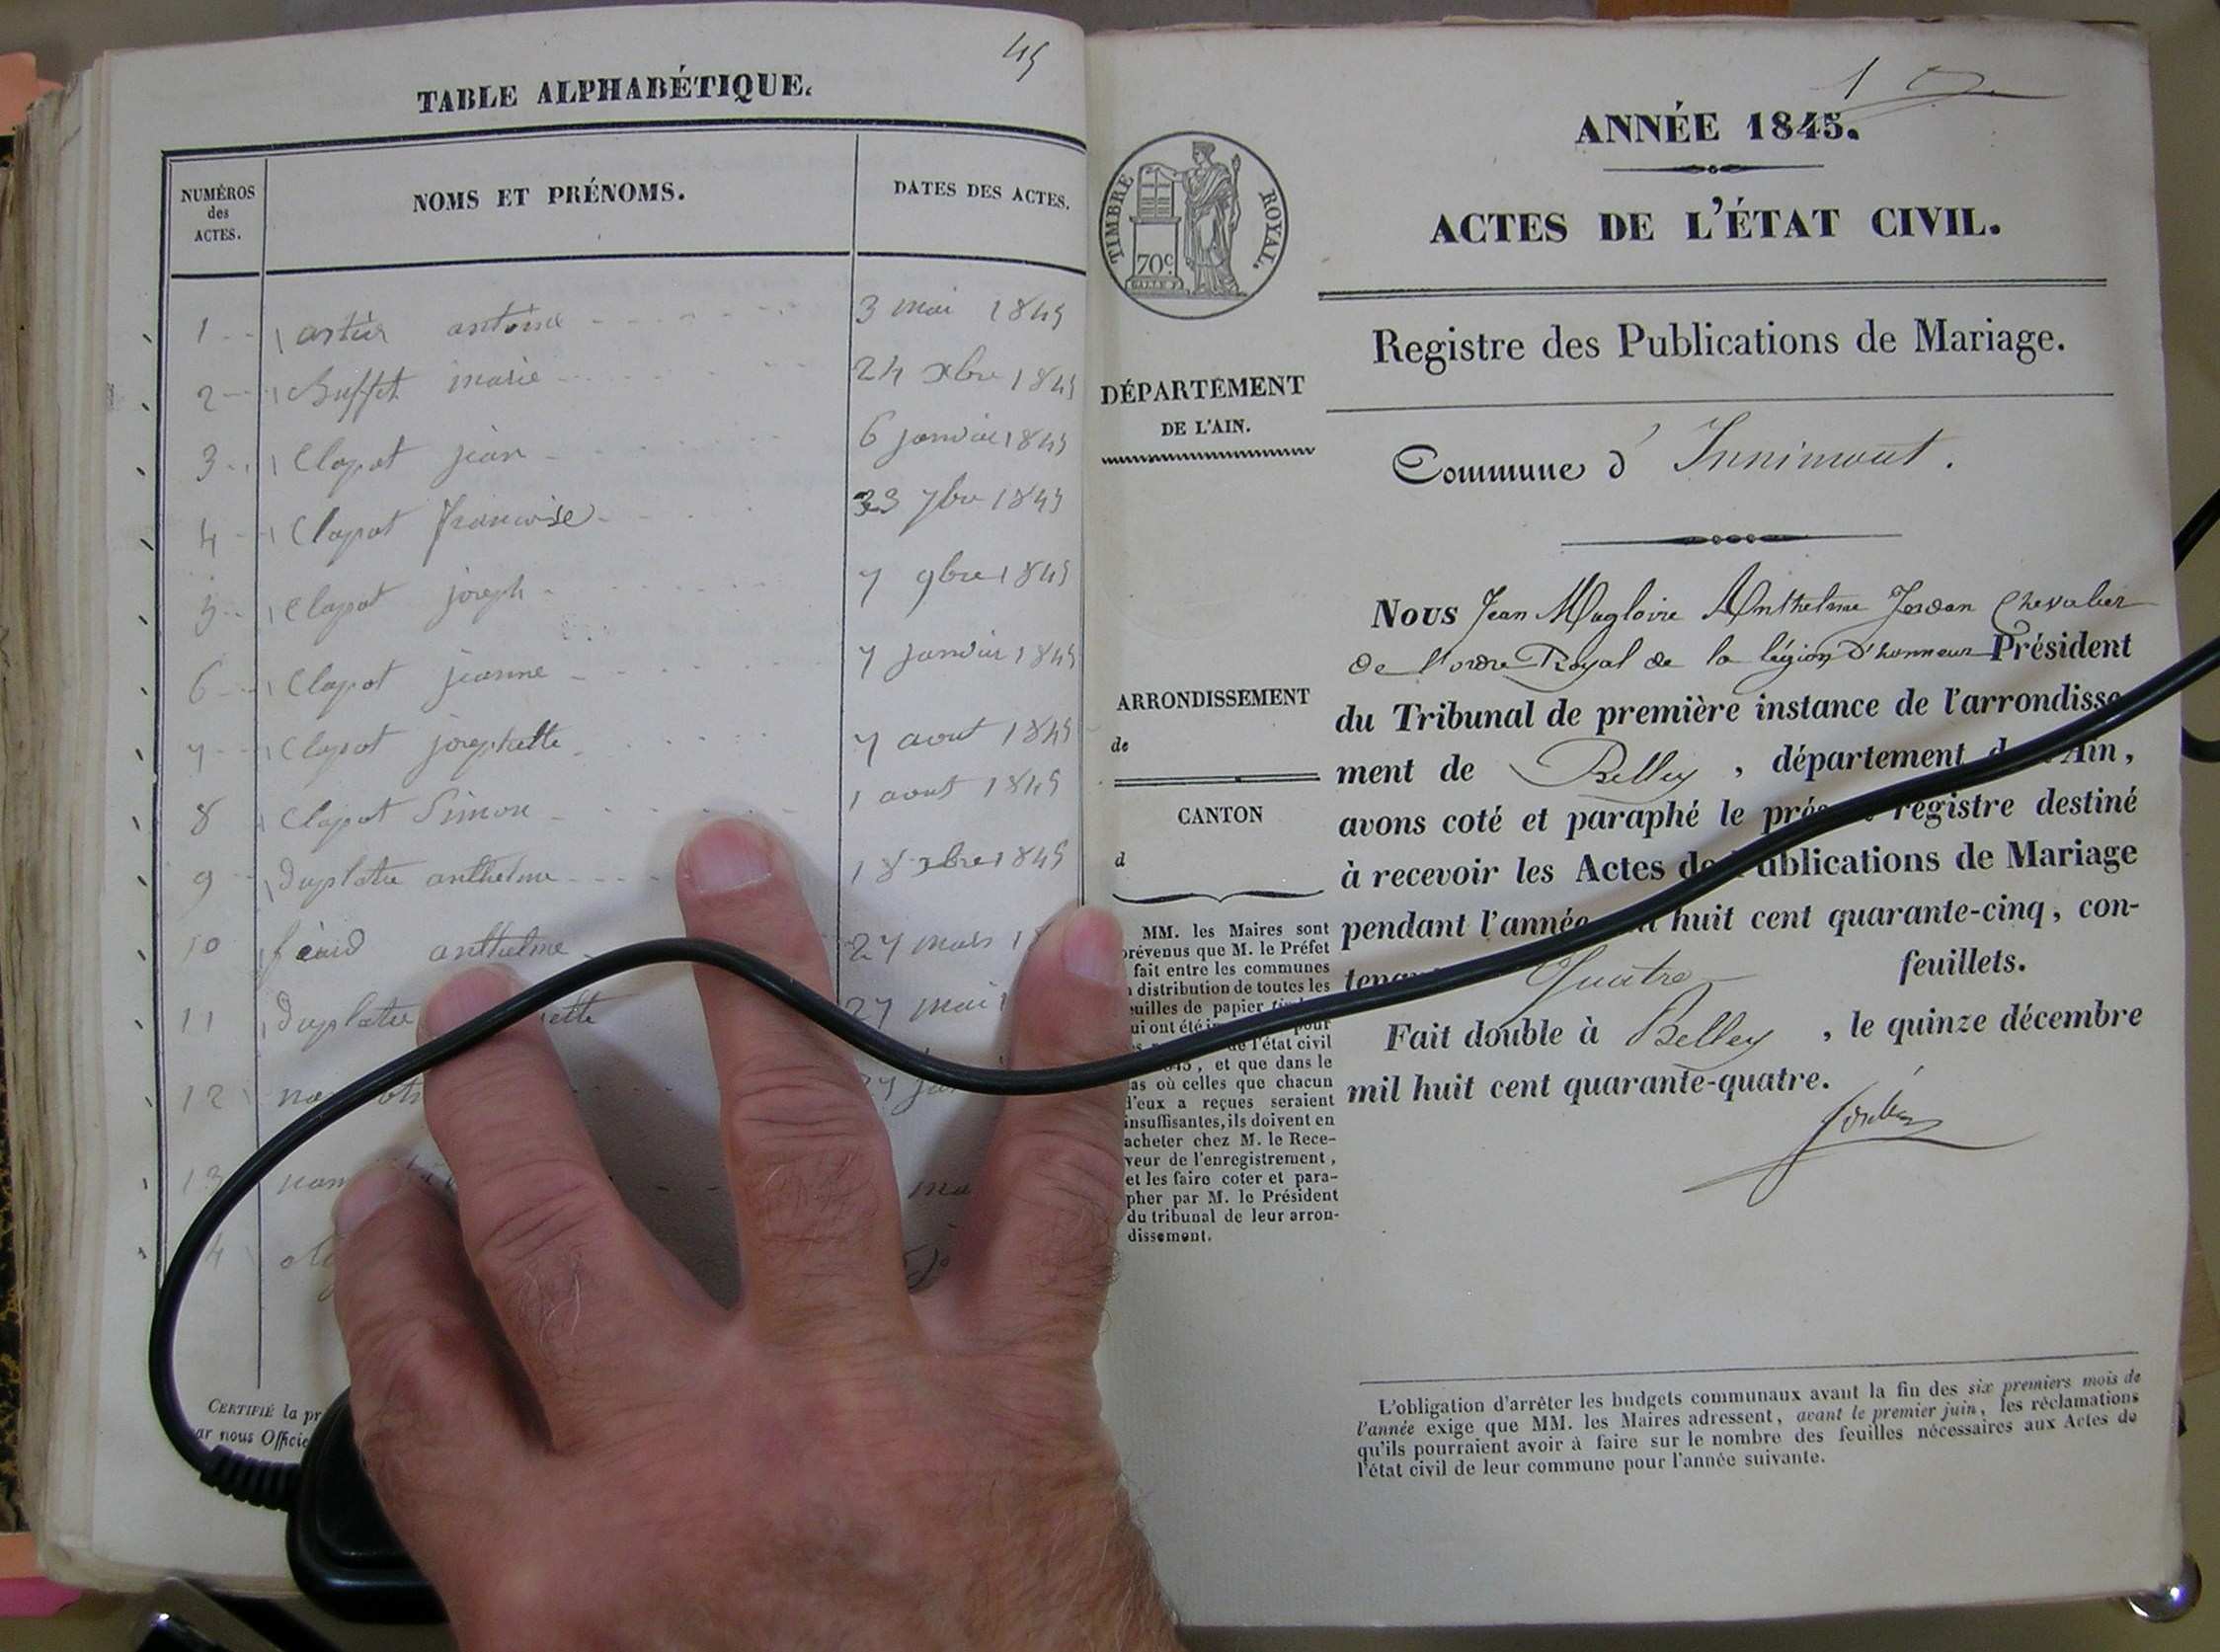 45
TABLE ALPHABÉTIQUE.
NUMÉROS des ACTES.
NOMS ET PRÉNOMS.
DATES DES ACTES.
1 artier antoine 3 mai 1845
2 Buffet marie 24 xbre 1845
3 Clapot jean 6 janvier 1845
4 Clapot francoise 7bre 1845
5 Clapot joseph 7 9bre 1845
6 Clapot jeanne 7 janvier 1845
7 Clapot josephette 7 aout 1845
8 Clapot Simon 1 aout 1845
9 Duplatre anthelme 18 xbre 1845
10 anthelme 27 mars
11 Duplatre 27 mai
12
13
CERTIFIÉ la
nous
1
ANNÉE 1845.
ACTES DE L'ÉTAT CIVIL.
TIMBRE ROYAL.
70c.
Registre des Publications de Mariage.
DÉPARTEMENT
DE L'AIN.
Commune d'Innimont.
Nous Jean Magloire Anthelme Jordan Chevalier
de l'ordre Royal de la légion d'honneur Président
ARRONDISSEMENT
de
du Tribunal de première instance de l'arrondisse
ment de Belley, département Ain,
CANTON
d
avons coté et paraphé le registre destiné
à recevoir les Actes de Publications de Mariage
pendant l'année huit cent quarante-cinq, con-
Quatre feuillets.
Fait double à Belley, le quinze décembre
mil huit cent quarante-quatre.
MM. les Maires sont
prévenus que M. le Préfet
fait entre les communes
distribution de toutes les
feuilles de papier
qui ont été pour
l'état civil
, et que dans le
cas où celles que chacun
d'eux a reçues seraient
insuffisantes, ils doivent en
acheter chez M. le Rece-
veur de l'enregistrement,
et les faire coter et para-
pher par M. le Président
du tribunal de leur arron-
dissement.
L'obligation d'arrêter les budgets communaux avant la fin des six premiers mois de
l'année exige que MM. les Maires adressent, avant le premier juin, les réclamations
qu'ils pourraient avoir à faire sur le nombre des feuilles nécessaires aux Actes de
l'état civil de leur commune pour l'année suivante.